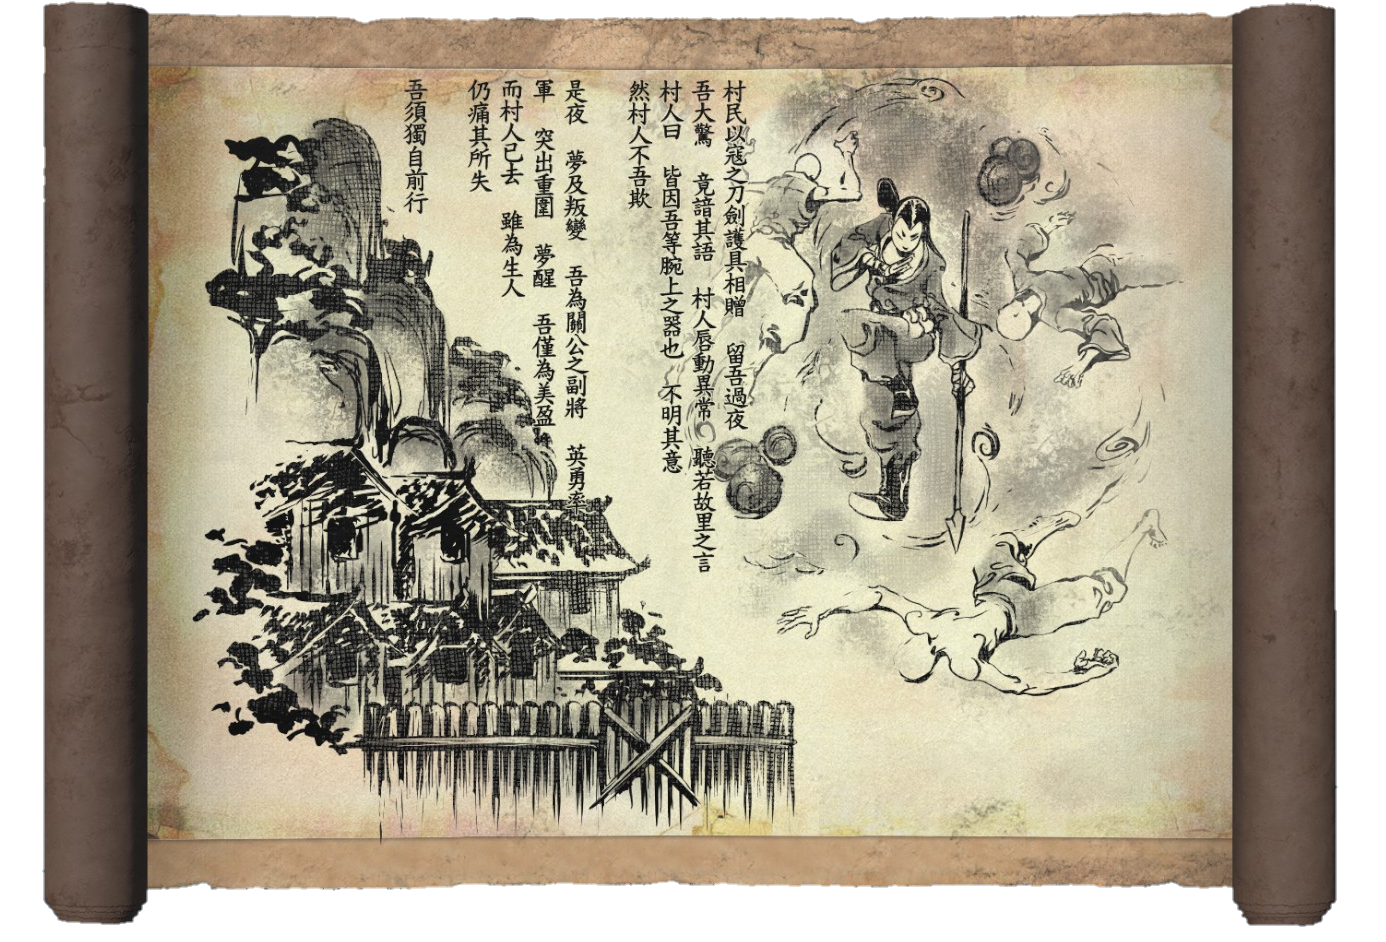 村民以寇之刀劍護具相贈 留吾過夜
吾大驚 竟諳其語 村人唇動異常 聽若故里之言
村人曰 皆因吾等腕上之器也 不明其意
然村人不吾欺
是夜 夢及叛變 吾為關公之副將 英勇率
軍 突出重圍 夢醒 吾僅為美盈
而村人已去 雖為生人
仍痛其所失
吾須獨自前行